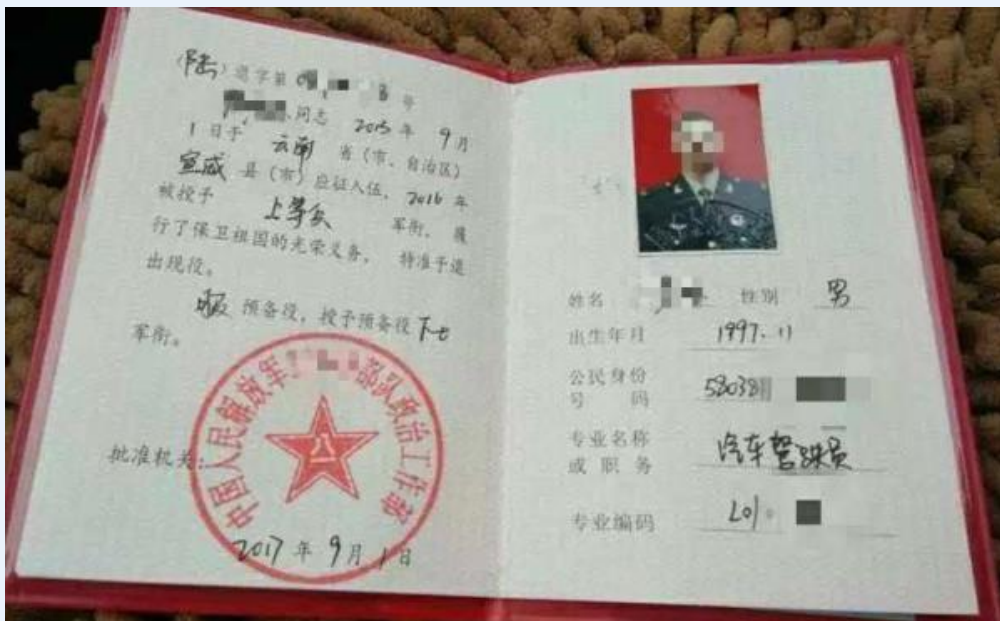 (陆)退字第 号
同志 2015 年 9 月
1 日于 云南 省(市、自治区)
宣威 县(市)应征入伍，2016 年
被授予 上等兵 军衔，履
行了保卫祖国的光荣义务，特准予退
出现役。
服 预备役，授予预备役 下士
军衔。
批准机关：
中国人民解放军 部队政治工作部
八一
2017 年 9 月 1 日
姓名 性别 男
出生年月 1997.11
公民身份
号 码 58038
专业名称
或 职 务 汽车驾驶员
专业编码 L01